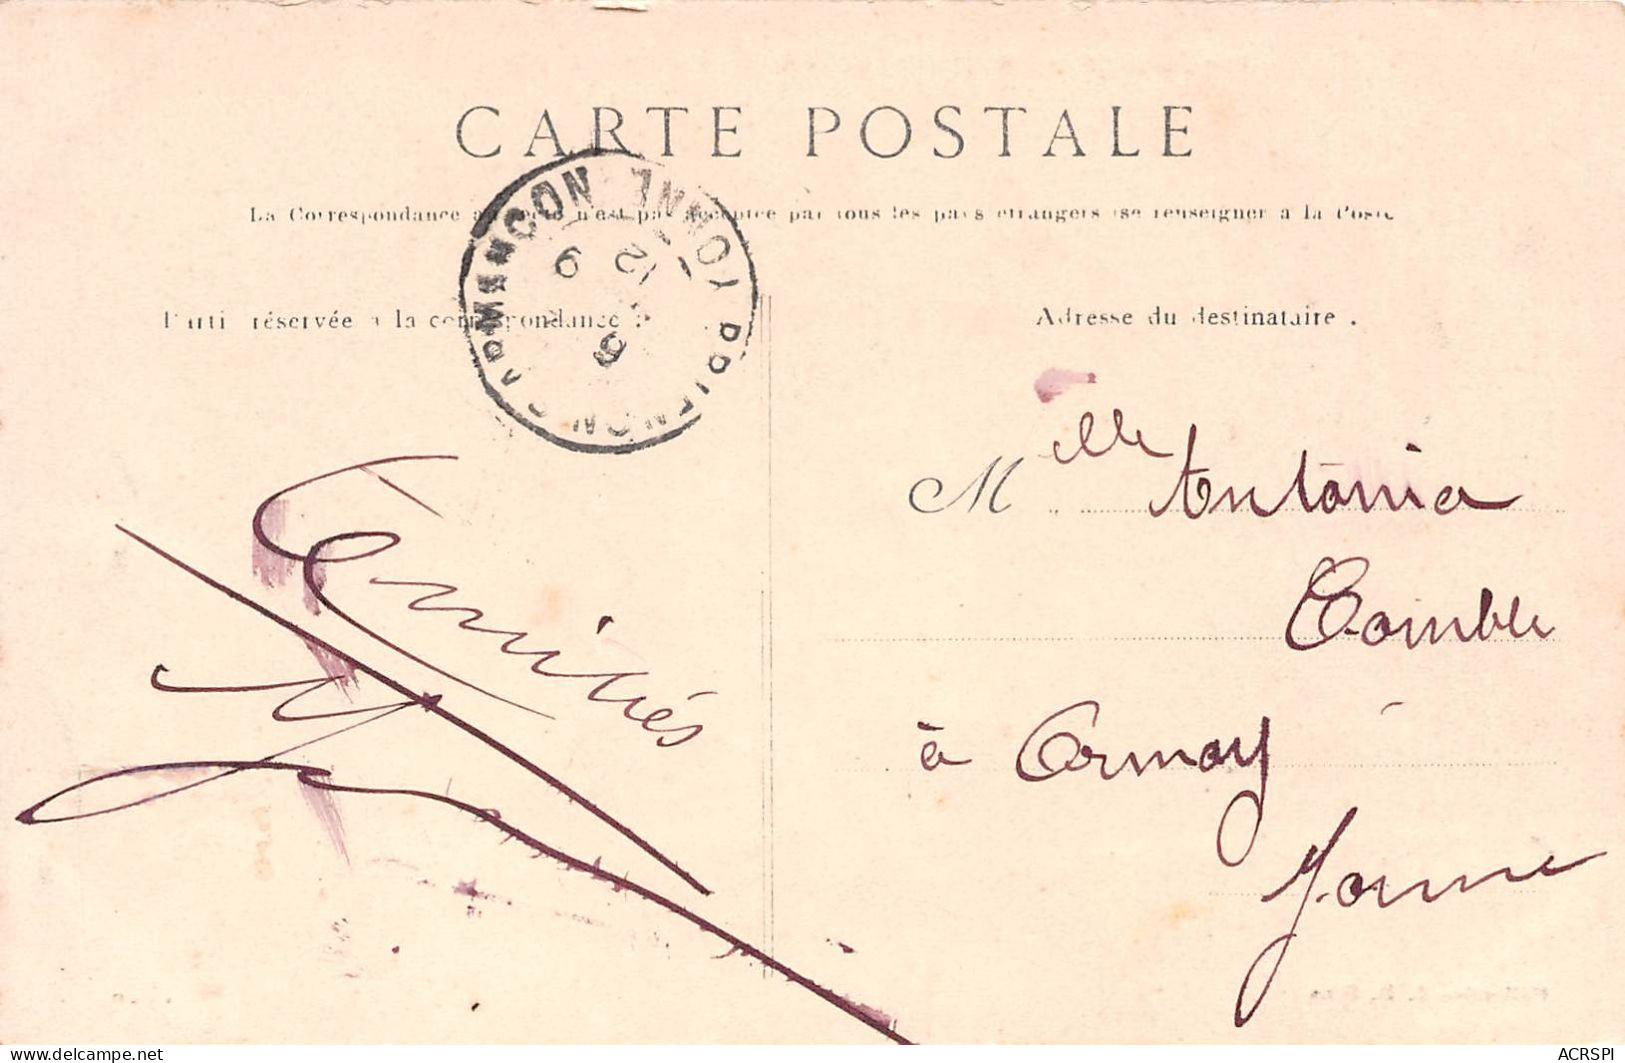 CARTE POSTALE
La Correspondance au recto n'est pas acceptée par tous les pays étrangers (se renseigner à la Poste
Partie réservée à la correspondance
Adresse du destinataire .
BRIENON-S-ARMENCON (YONNE)
9 12
Amitiés
Melle Antonia
Comble
à Ormoy
Yonne
delcampe.net
ACRSPI